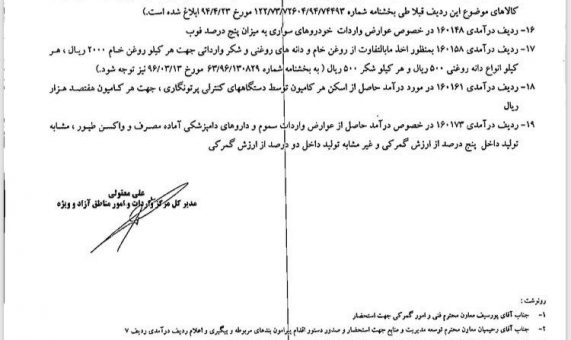 کالاهای موضوع این ردیف قبلا طی بخشنامه شماره ۱۲۲/۷۳/۷۲۶۰۴/۹۴/۷۴۴۹۳ مورخ ۹۴/۴/۲۳ ابلاغ شده است.)
۱۶- ردیف درآمدی ۱۶۰۱۴۸ در خصوص عوارض واردات خودروهای سواری به میزان پنج درصد فوب
۱۷- ردیف درآمدی ۱۶۰۱۵۸ بمنظور اخذ مابالتفاوت از روغن خام و دانه های روغنی و شکر وارداتی جهت هر کیلو روغن خام ۲۰۰۰ ریال ، هر
کیلو انواع دانه روغنی ۵۰۰ ریال و هر کیلو شکر ۵۰۰ ریال ( به بخشنامه شماره ۶۳/۹۶/۱۳۰۸۲۹ مورخ ۹۶/۰۳/۱۳ نیز توجه شود.)
۱۸- ردیف درآمدی ۱۶۰۱۶۱ در مورد درآمد حاصل از اسکن هر کامیون توسط دستگاههای کنترلی پرتونگاری ، جهت هر کامیون هفتصد هزار
ریال
۱۹- ردیف درآمدی ۱۶۰۱۷۳ در خصوص درآمد حاصل از عوارض واردات سموم و داروهای دامپزشکی آماده مصرف و واکسن طیور ، مشابه
تولید داخل پنج درصد از ارزش گمرکی و غیر مشابه تولید داخل دو درصد از ارزش گمرکی
علی معقولی
مدیر کل مرکز واردات و امور مناطق آزاد و ویژه
رونوشت :
۱- جناب آقای پورسیف معاون محترم فنی و امور گمرکی جهت استحضار
۲- جناب آقای رحیمیان معاون محترم توسعه مدیریت و منابع جهت استحضار و صدور دستور اقدام پیرامون بندهای مربوطه و پیگیری و اعلام ردیف درآمدی ردیف ۷